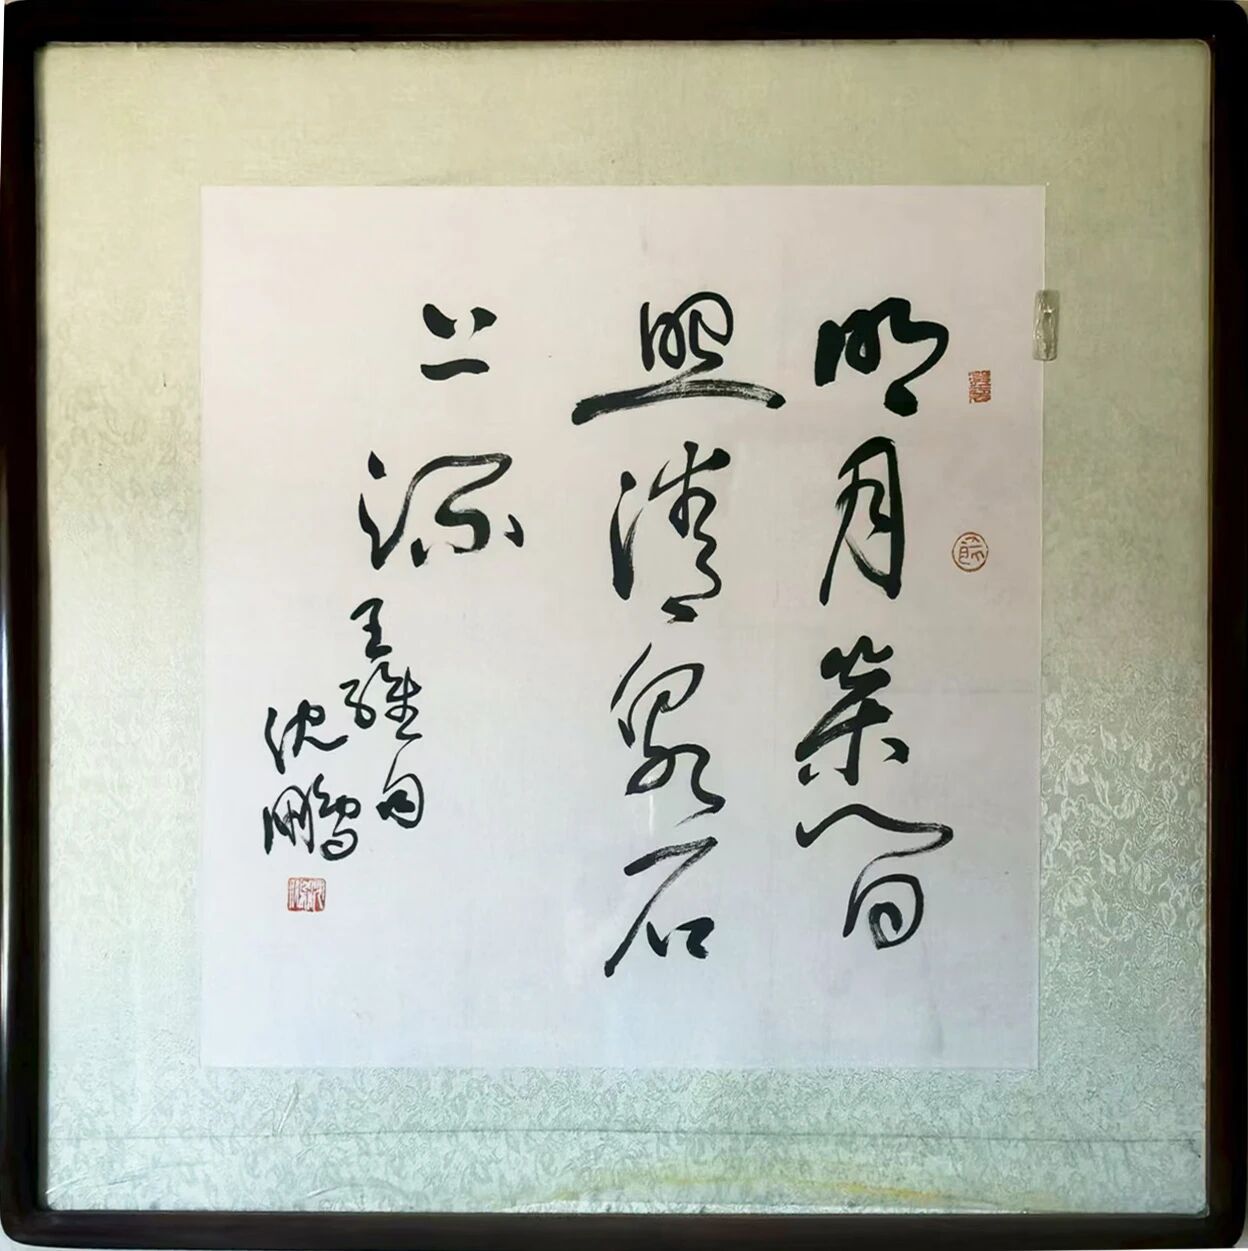 明月松間
照清泉石
上流
王維句
沈鵬